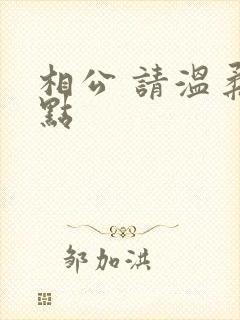 相公 請溫柔
點
邹加洪